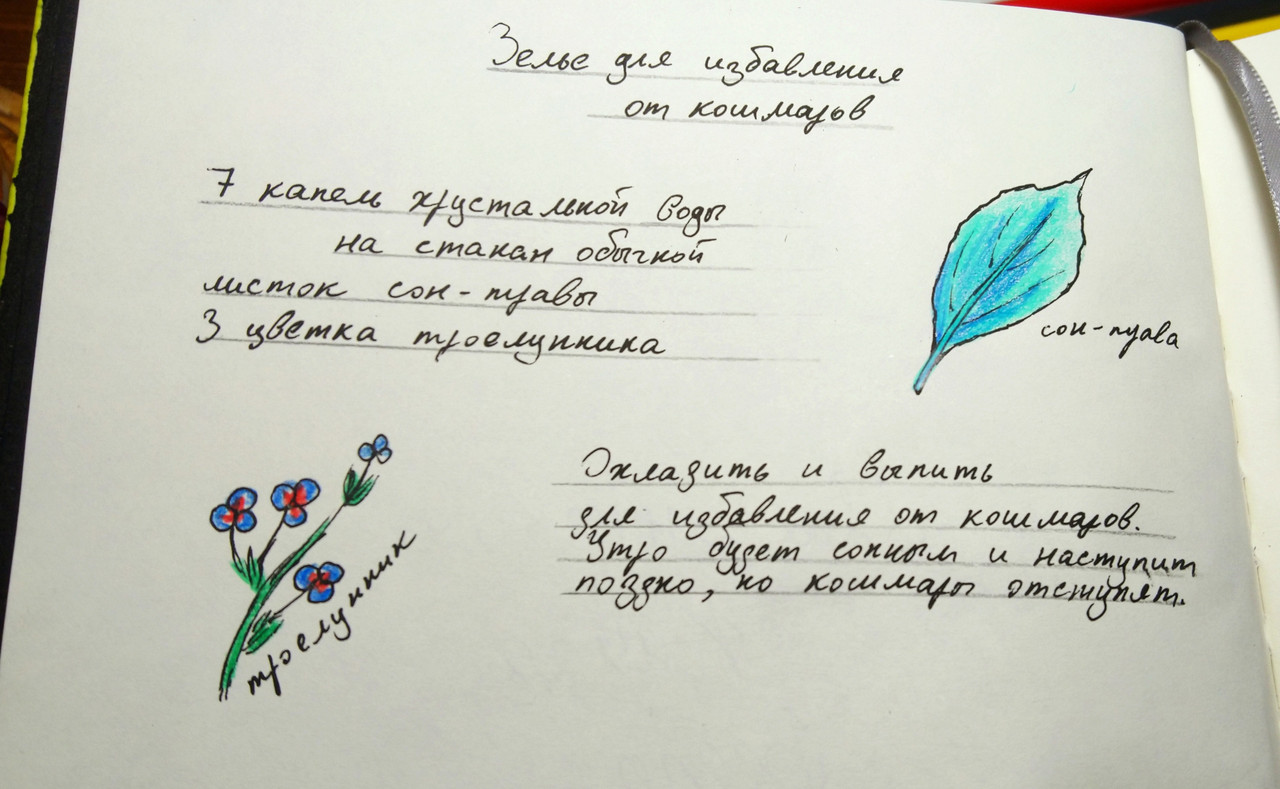 Зелье для избавления
от кошмаров
7 капель хрустальной воды
на стакан обычной
листок сон-травы
3 цветка троелунника
сон-трава
троелунник
Охладить и выпить
для избавления от кошмаров.
Утро будет сонным и наступит
поздно, но кошмары отступят.